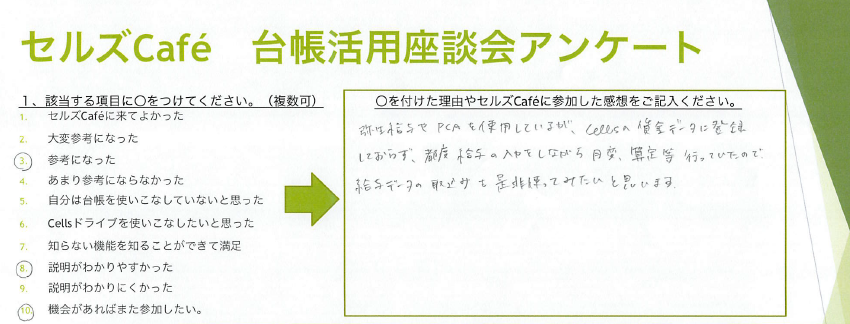 セルズCafé 台帳活用座談会アンケート
1、該当する項目に〇をつけてください。（複数可）
1. セルズCaféに来てよかった
2. 大変参考になった
3. 参考になった
4. あまり参考にならなかった
5. 自分は台帳を使いこなしていないと思った
6. Cellsドライブを使いこなしたいと思った
7. 知らない機能を知ることができて満足
8. 説明がわかりやすかった
9. 説明がわかりにくかった
10. 機会があればまた参加したい。
〇を付けた理由やセルズCaféに参加した感想をご記入ください。
弥生給与や PCAを使用しているが、Cellsへ賃金データは登録
しておらず、都度 給与の入力をしながら 月変、算定等 行っていたので
給与データの取込みも 是非使ってみたいと思います。